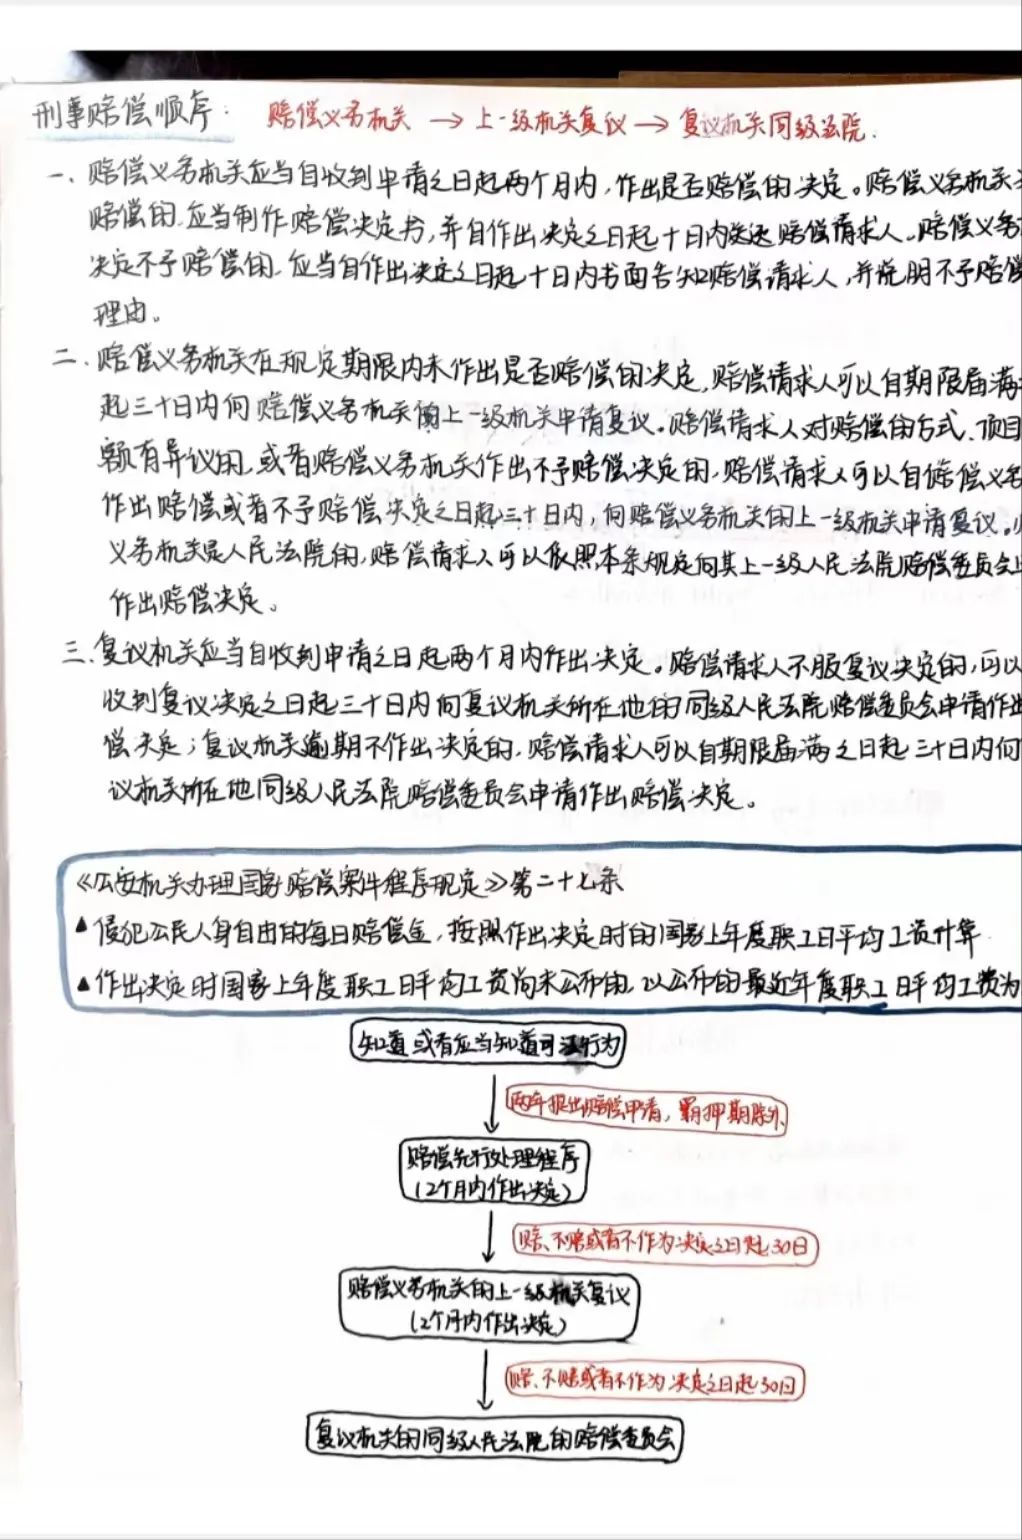 刑事赔偿顺序： 赔偿义务机关 → 上一级机关复议 → 复议机关同级法院.
一、赔偿义务机关应当自收到申请之日起两个月内，作出是否赔偿的决定。赔偿义务机关
赔偿的，应当制作赔偿决定书，并自作出决定之日起十日内送达赔偿请求人。赔偿义务
决定不予赔偿的，应当自作出决定之日起十日内书面告知赔偿请求人，并说明不予赔偿
理由。
二、赔偿义务机关在规定期限内未作出是否赔偿的决定，赔偿请求人可以自期限届满
起三十日内向赔偿义务机关的上一级机关申请复议。赔偿请求人对赔偿的方式、项目
额有异议的，或者赔偿义务机关作出不予赔偿决定的，赔偿请求人可以自赔偿义务
作出赔偿或者不予赔偿决定之日起三十日内，向赔偿义务机关的上一级机关申请复议。
义务机关是人民法院的，赔偿请求人可以依照本条规定向其上一级人民法院赔偿委员会
作出赔偿决定。
三、复议机关应当自收到申请之日起两个月内作出决定。赔偿请求人不服复议决定的，可以
收到复议决定之日起三十日内向复议机关所在地的同级人民法院赔偿委员会申请作出
偿决定；复议机关逾期不作出决定的，赔偿请求人可以自期限届满之日起三十日内向
议机关所在地同级人民法院赔偿委员会申请作出赔偿决定。
《公安机关办理国家赔偿案件程序规定》第二十七条
▲侵犯公民人身自由的每日赔偿金，按照作出决定时的国家上年度职工日平均工资计算
▲作出决定时国家上年度职工日平均工资尚未公布的，以公布的最近年度职工日平均工资为
知道或者应当知道司法行为
两年提出赔偿申请，羁押期除外
赔偿先行处理程序
（2个月内作出决定）
赔、不赔或者不作为决定之日起30日
赔偿义务机关的上一级机关复议
（2个月内作出决定）
赔、不赔或者不作为决定之日起30日
复议机关的同级人民法院的赔偿委员会